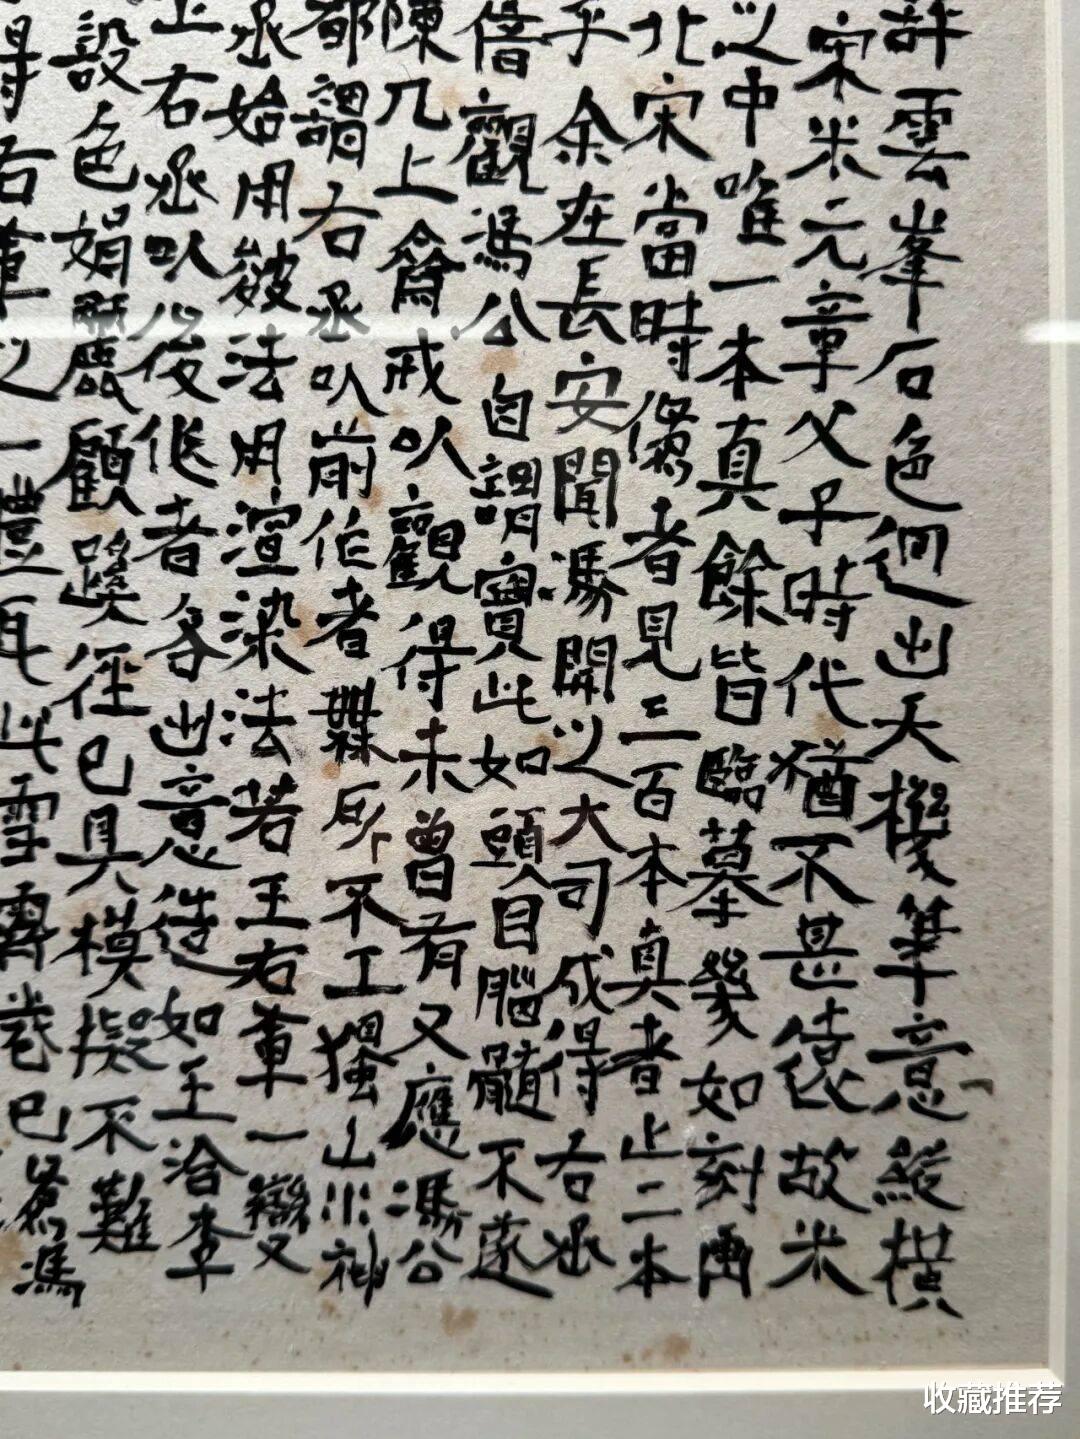 評雲峯石色迥出天機筆意縱橫
宋米元章父子時代猶不甚遠故米
之中唯一本真餘皆臨摹幾如刻畫
北宋當時偽者見三百本真者止二本
乎余在長安聞馮開之大司成得右丞
借觀馮公自謂寶此如頭目腦髓不遂
陳几上齋戒以觀得未曾有又應馮公
都謂右丞以前作者無所不工獨山水神
丞始用皴法用渲染法若王右軍一變
上右丞以後作者各出意造如王洽李
設色娟麗顧蹊徑已具模擬不難
得右軍之一體耳此雪霽卷已為馮
收藏推荐